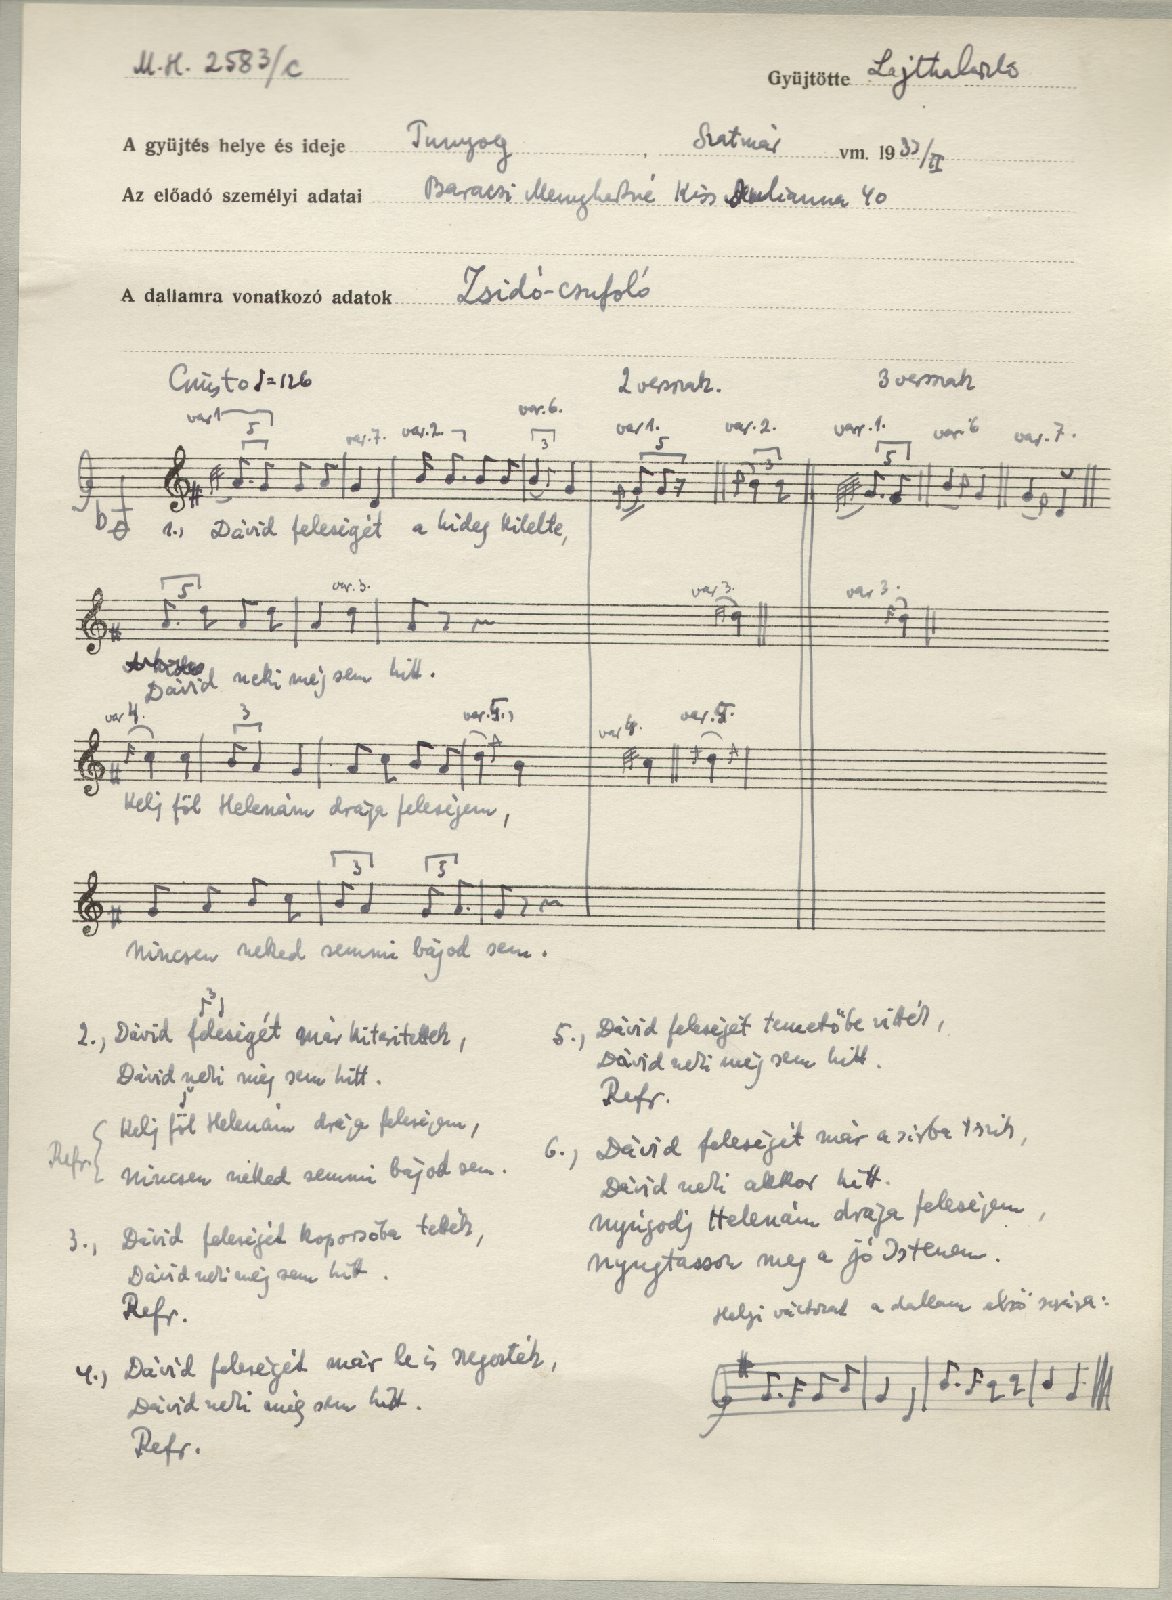 M.H. 2583/c
Gyüjtötte Lajtha László
A gyüjtés helye és ideje Tunyog, Szatmár vm. 19 37/II
Az előadó személyi adatai Baracsi Menyhértné Kiss Julianna 40
A dallamra vonatkozó adatok Zsidó-csufoló
Giusto ♩=126
2 versszak.
3 versszak
var 1 5 var.7. var.2 var.6. 3 var 1. 5 var.2. 3 var.1. 5 var 6 var.7.
1., Dávid feleségét a hideg kilelte,
5 var.3. var 3. var 3.
Dávid neki még sem hitt.
var 4. 3 var.5., var 4. var.5.
Kelj föl Helenám drága feleségem,
3 3
Nincsen neked semmi bájod sem.
3
2., Dávid feleségét már kiterítették,
Dávid neki még sem hitt.
Refr. Kelj föl Helenám drága feleségem,
Nincsen néked semmi bájod sem.
3., Dávid feleségét koporsóba tették,
Dávid neki még sem hitt.
Refr.
4., Dávid feleségét már le is szegezték,
Dávid neki még sem hitt.
Refr.
5., Dávid feleségét temetőbe vitték,
Dávid neki még sem hitt.
Refr.
6., Dávid feleségét már a sirba teszik,
Dávid neki akkor hitt.
Nyugodj Helenám drága feleségem,
Nyugtasson meg a jó Istenem.
Helyi változat a dallam első sorára: